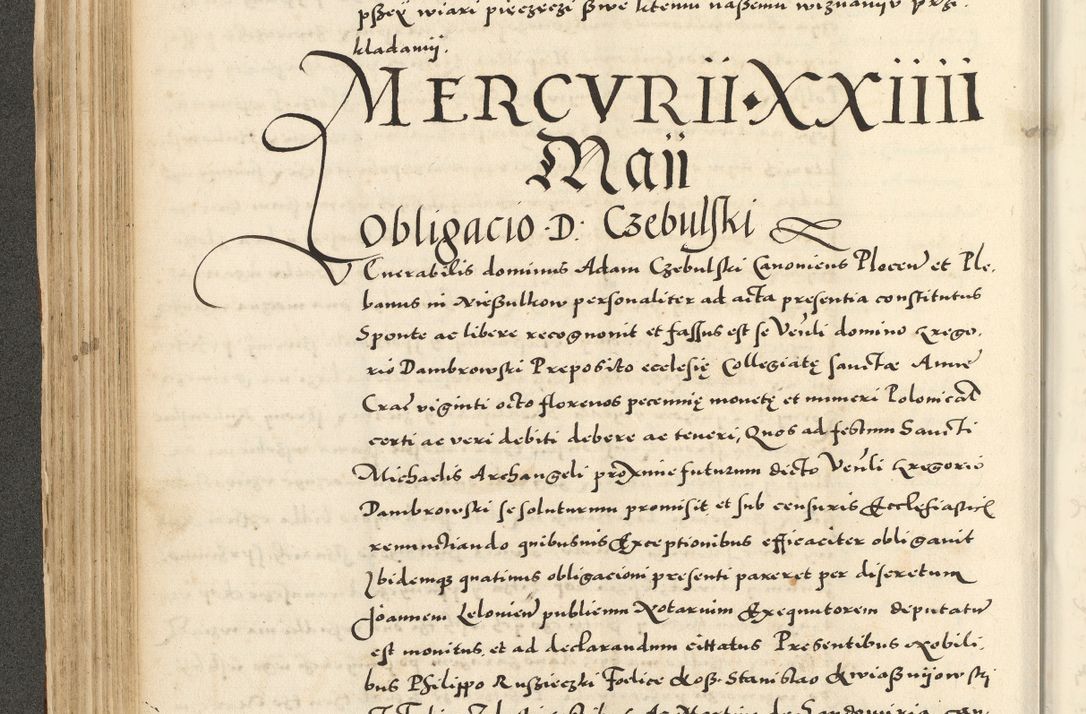 pszey wiari pieczęczi swe ktemu naszemu wiznaniv prži‑
kladamij.
MERCVRII·XXIIII
Maii
Obligacio D: Czebulski
Venerabilis dominus Adam Czebulski Canonicus Plocen̄ et Ple‑
banus in Nieszulkow personaliter ad acta presentia constitutus
Sponte ac libere recognouit et fassus est se Ven̄li domino Grego‑
rio Dambrowski Preposito ecclesię Collegiatę sanctæ Anne
Crac̄ viginti octo florenos pecunię monetę et numeri Polonical̄
certi ac veri debiti debere ac teneri, Quos ad festum Sancti
Michaelis Archangeli proxime futurum dicto Ven̄li Gregorio
Dambrowski se soluturum promisit et sub censuris Ecclesiastic̄
renunctiando quibusuis Exceptionibus efficaciter obligauit
Ibidemq̄ quatinus obligacioni presenti pareret per discretum
Joannem Lelouien̄ publicum Notarium Exequutorem deputatū
est monitus, et ad declarandum cittatus Presentibus Nobili‑
bus Philippo Ruszieczki Foelice Stanislao Kwiasznijowski